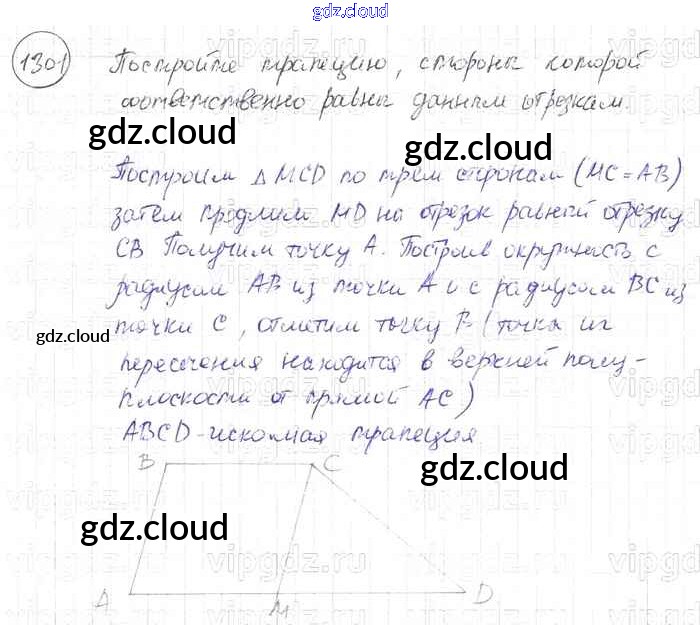 gdz.cloud
1301 Постройте трапецию, стороны которой
соответственно равны данным отрезкам.
gdz.cloud
gdz.cloud
Построим △ MCD по трем сторонам (MC = AB)
затем продлим MD на отрезок равный отрезку
CB Получим точку A. Построив окружность с
радиусом AB из точки A и с радиусом BC из
gdz.cloud
точки C, отметим точку B (точка их
пересечения находится в верхней полу-
плоскости от прямой AC)
ABCD - искомая трапеция
gdz.cloud
B C
gdz.cloud
A M D